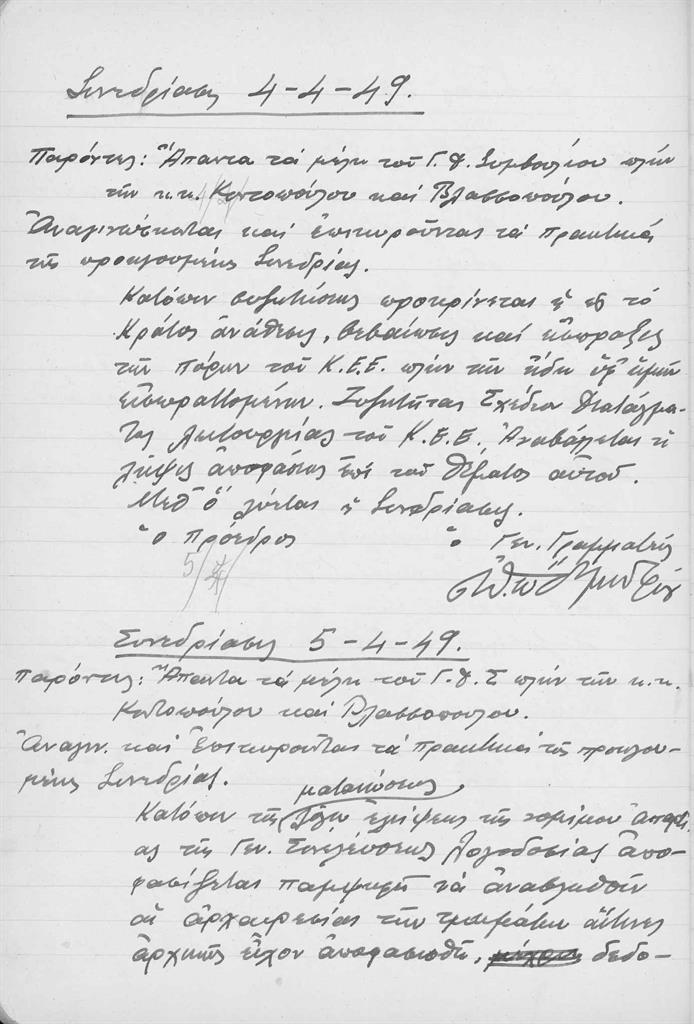 Συνεδρίασις 4-4-49.
Παρόντες: Ἅπαντα τά μέλη τοῦ Γ. Δ. Συμβουλίου πλήν
τῶν κ.κ. Κοντοπούλου καί Βλασσοπούλου.
Ἀναγινώσκονται καί ἐπικυροῦνται τά πρακτικά
τῆς προηγουμένης Συνεδρίας.
Κατόπιν συζητήσεως προκρίνεται ἡ εἰς τό
Κράτος ἀνάθεσις, βεβαίωσις καί εἴσπραξις
τῶν πόρων τοῦ Κ.Ε.Ε. πλήν τῶν ἤδη ὑφ' ἡμῶν
εἰσπραττομένων. Συζητεῖται Σχέδιον Διατάγμα-
τος λειτουργίας τοῦ Κ.Ε.Ε. Ἀναβάλεται ἡ
λήψις ἀποφάσεως ἐπί τοῦ θέματος αὐτοῦ.
Μεθ' ὅ λύεται ἡ Συνεδρίασις.
Ὁ Πρόεδρος Ὁ Γεν. Γραμματεύς
5/4
Συνεδρίασις 5-4-49.
Παρόντες: Ἅπαντα τά μέλη τοῦ Γ.Δ.Σ πλήν τῶν κ.κ.
Κοντοπούλου καί Βλασσοπούλου.
Ἀναγιν. καί ἐπικυροῦνται τά πρακτικά τῆς προηγου-
μένης Συνεδρίας.
ματαιώσεως
Κατόπιν τῆς λόγω ἐλλείψεως τῆς νομίμου ἀπαρτί-
ας τῆς Γεν. Συνελεύσεως Λογοδοσίας ἀπο-
φασίζεται παμψηφεί νά ἀναβληθοῦν
αἱ ἀρχαιρεσίαι τῶν τμημάτων αἵτινες
ἀρχικῶς εἶχον ἀποφασισθῆ, δεδο-